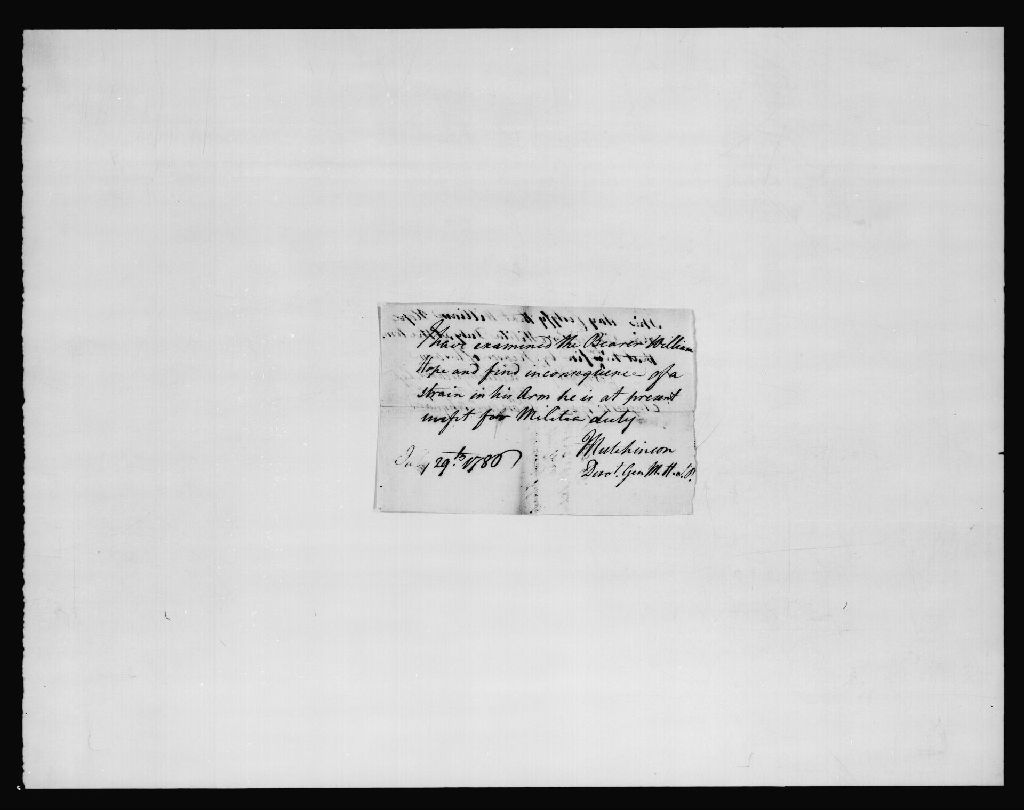 I have examined the Bearer William
Hope and find inconsequence of a
strain in his Arm he is at present
unfit for Militia duty
July 29th. 1780
JHutchinson